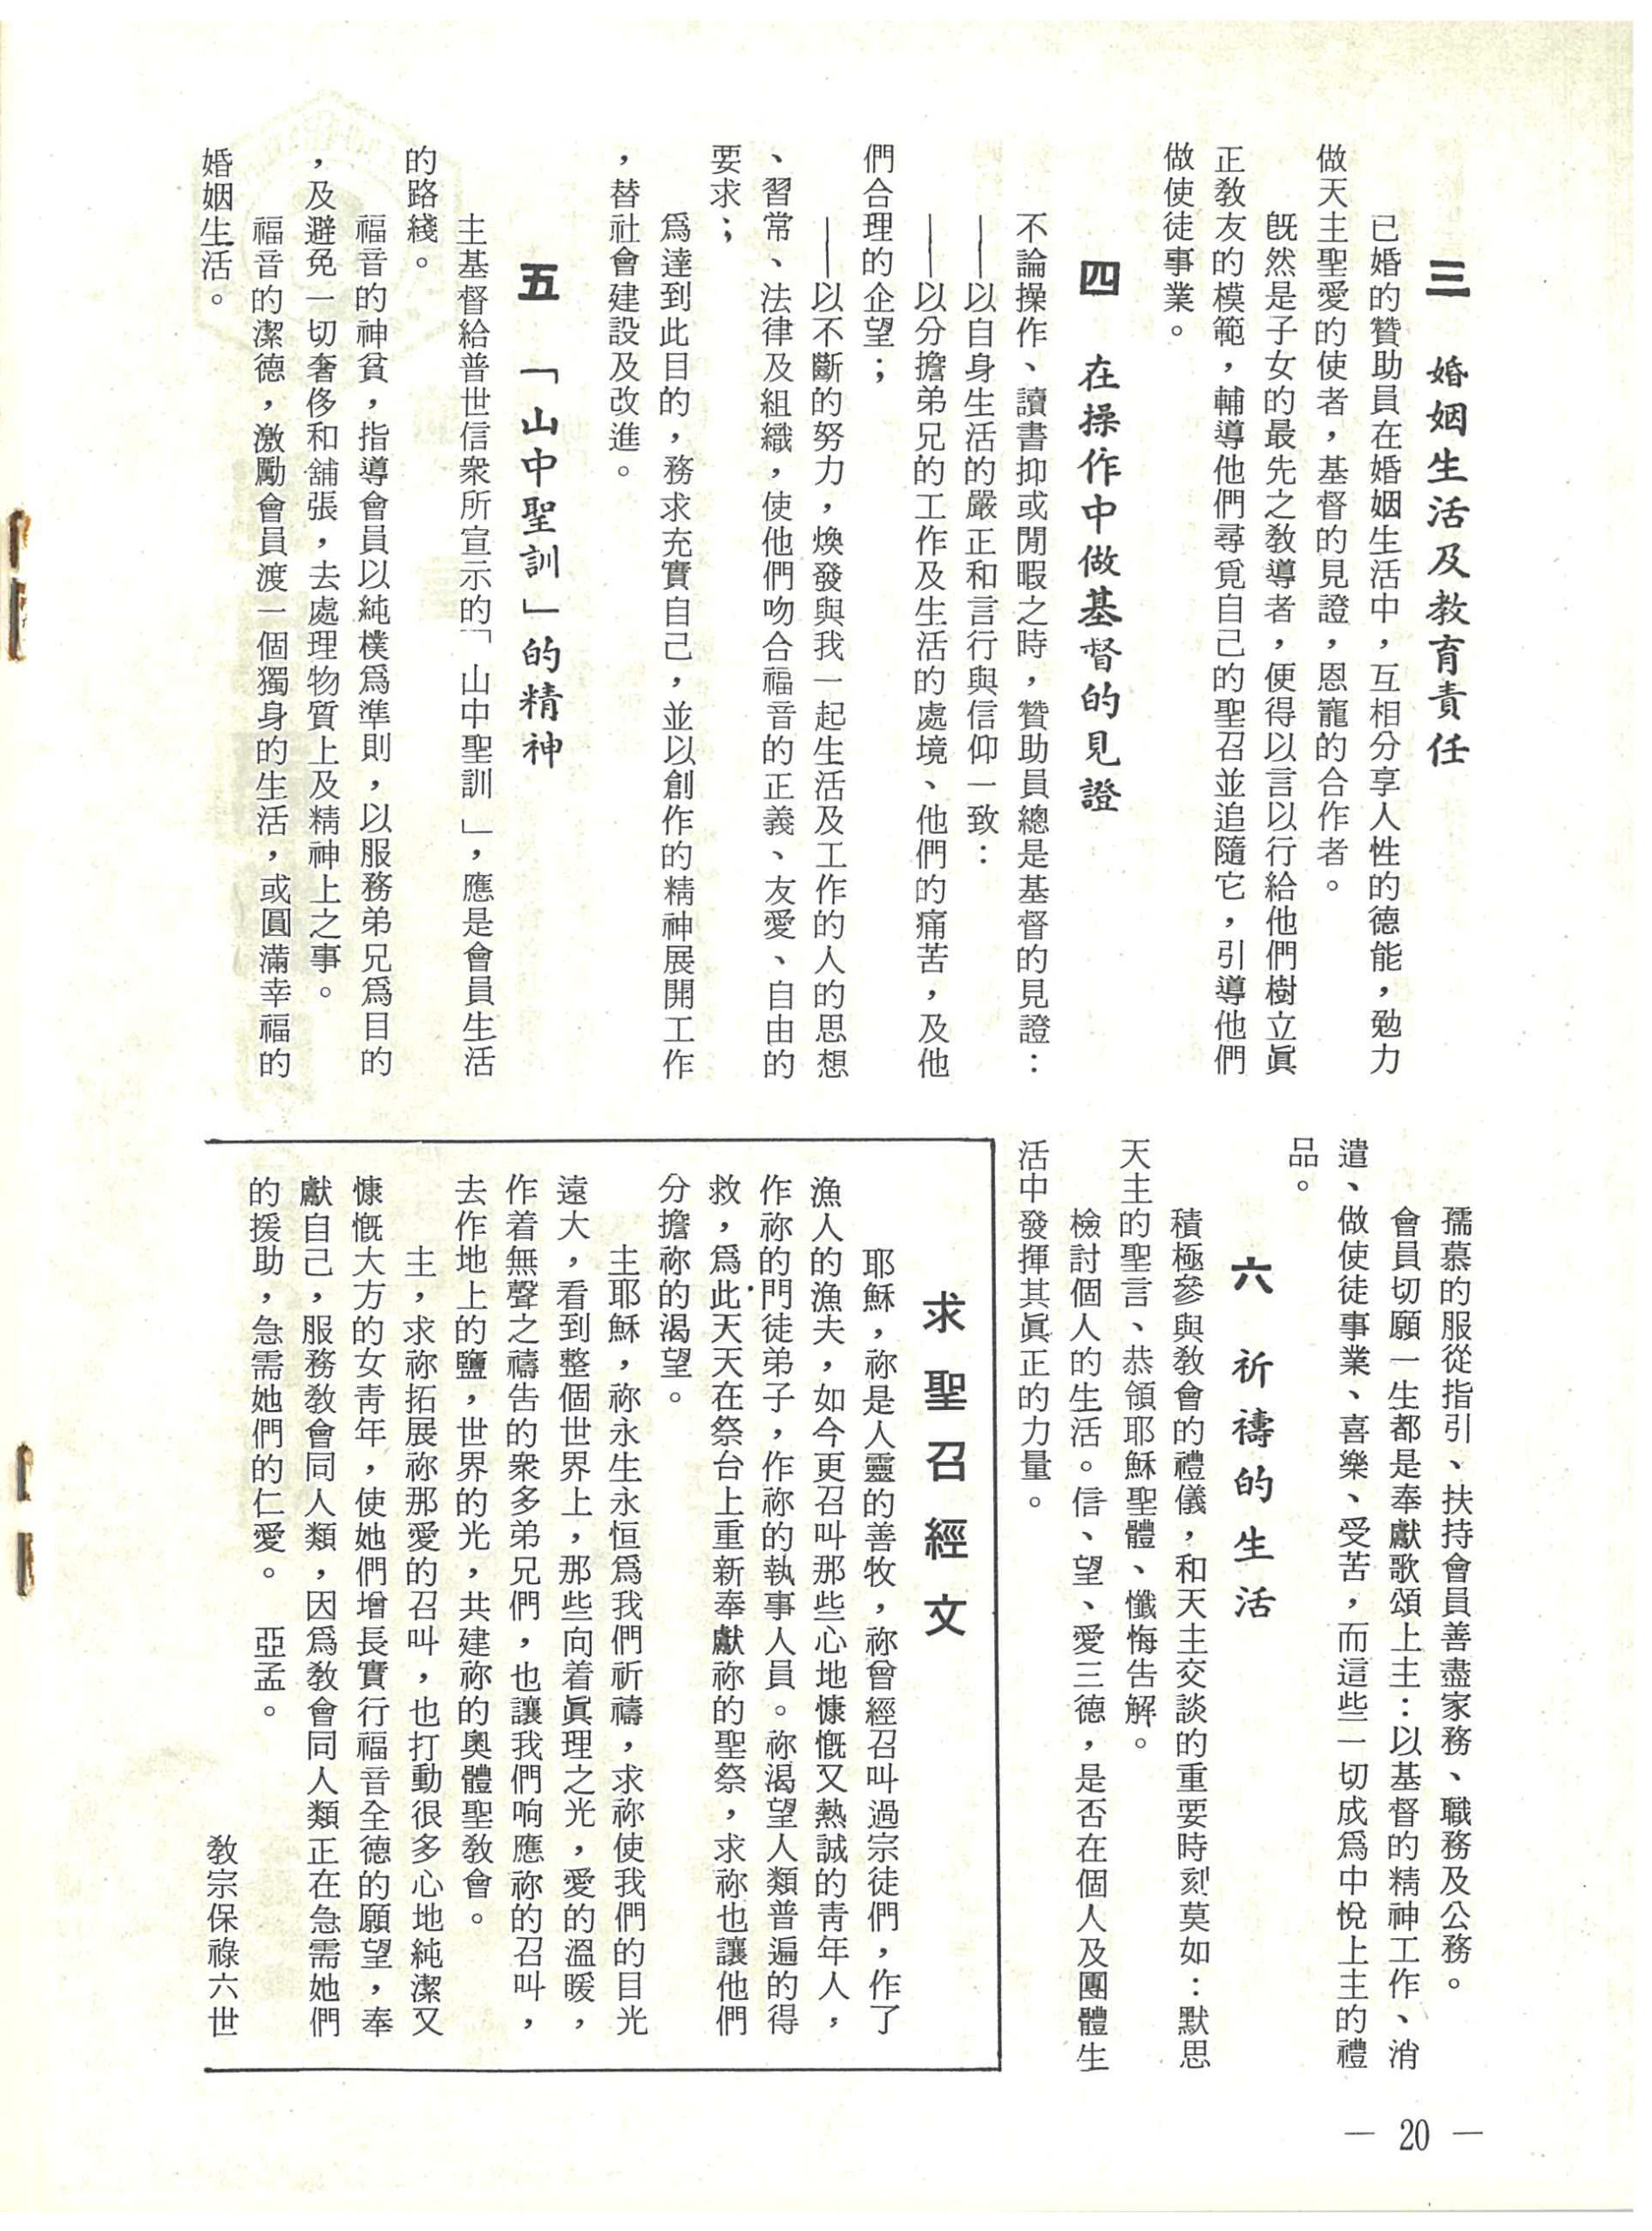 三　婚姻生活及教育責任
已婚的贊助員在婚姻生活中，互相分享人性的德能，勉力
做天主聖愛的使者，基督的見證，恩寵的合作者。
旣然是子女的最先之敎導者，便得以言以行給他們樹立眞
正敎友的模範，輔導他們尋覓自己的聖召並追隨它，引導他們
做使徒事業。
四　在操作中做基督的見證
不論操作、讀書抑或閒暇之時，贊助員總是基督的見證：
——以自身生活的嚴正和言行與信仰一致：
——以分擔弟兄的工作及生活的處境、他們的痛苦，及他
們合理的企望；
——以不斷的努力，煥發與我一起生活及工作的人的思想
、習常、法律及組織，使他們吻合福音的正義、友愛、自由的
要求；
爲達到此目的，務求充實自己，並以創作的精神展開工作
，替社會建設及改進。
五　「山中聖訓」的精神
主基督給普世信衆所宣示的「山中聖訓」，應是會員生活
的路綫。
福音的神貧，指導會員以純樸爲準則，以服務弟兄爲目的
，及避免一切奢侈和舖張，去處理物質上及精神上之事。
福音的潔德，激勵會員渡一個獨身的生活，或圓滿幸福的
婚姻生活。
孺慕的服從指引、扶持會員善盡家務、職務及公務。
會員切願一生都是奉獻歌頌上主：以基督的精神工作、消
遣、做使徒事業、喜樂、受苦，而這些一切成爲中悅上主的禮
品。
六　祈禱的生活
積極參與敎會的禮儀，和天主交談的重要時刻莫如：默思
天主的聖言、恭領耶穌聖體、懺悔告解。
檢討個人的生活。信、望、愛三德，是否在個人及團體生
活中發揮其眞正的力量。
求聖召經文
耶穌，祢是人靈的善牧，祢曾經召叫過宗徒們，作了
漁人的漁夫，如今更召叫那些心地慷慨又熱誠的靑年人，
作祢的門徒弟子，作祢的執事人員。祢渴望人類普遍的得
救，爲此天天在祭台上重新奉獻祢的聖祭，求祢也讓他們
分擔祢的渴望。
主耶穌，祢永生永恒爲我們祈禱，求祢使我們的目光
遠大，看到整個世界上，那些向着眞理之光，愛的溫暖，
作着無聲之禱告的衆多弟兄們，也讓我們响應祢的召叫，
去作地上的鹽，世界的光，共建祢的奧體聖敎會。
主，求祢拓展祢那愛的召叫，也打動很多心地純潔又
慷慨大方的女靑年，使她們增長實行福音全德的願望，奉
獻自己，服務敎會同人類，因爲敎會同人類正在急需她們
的援助，急需她們的仁愛。　亞孟。
敎宗保祿六世
— 20 —